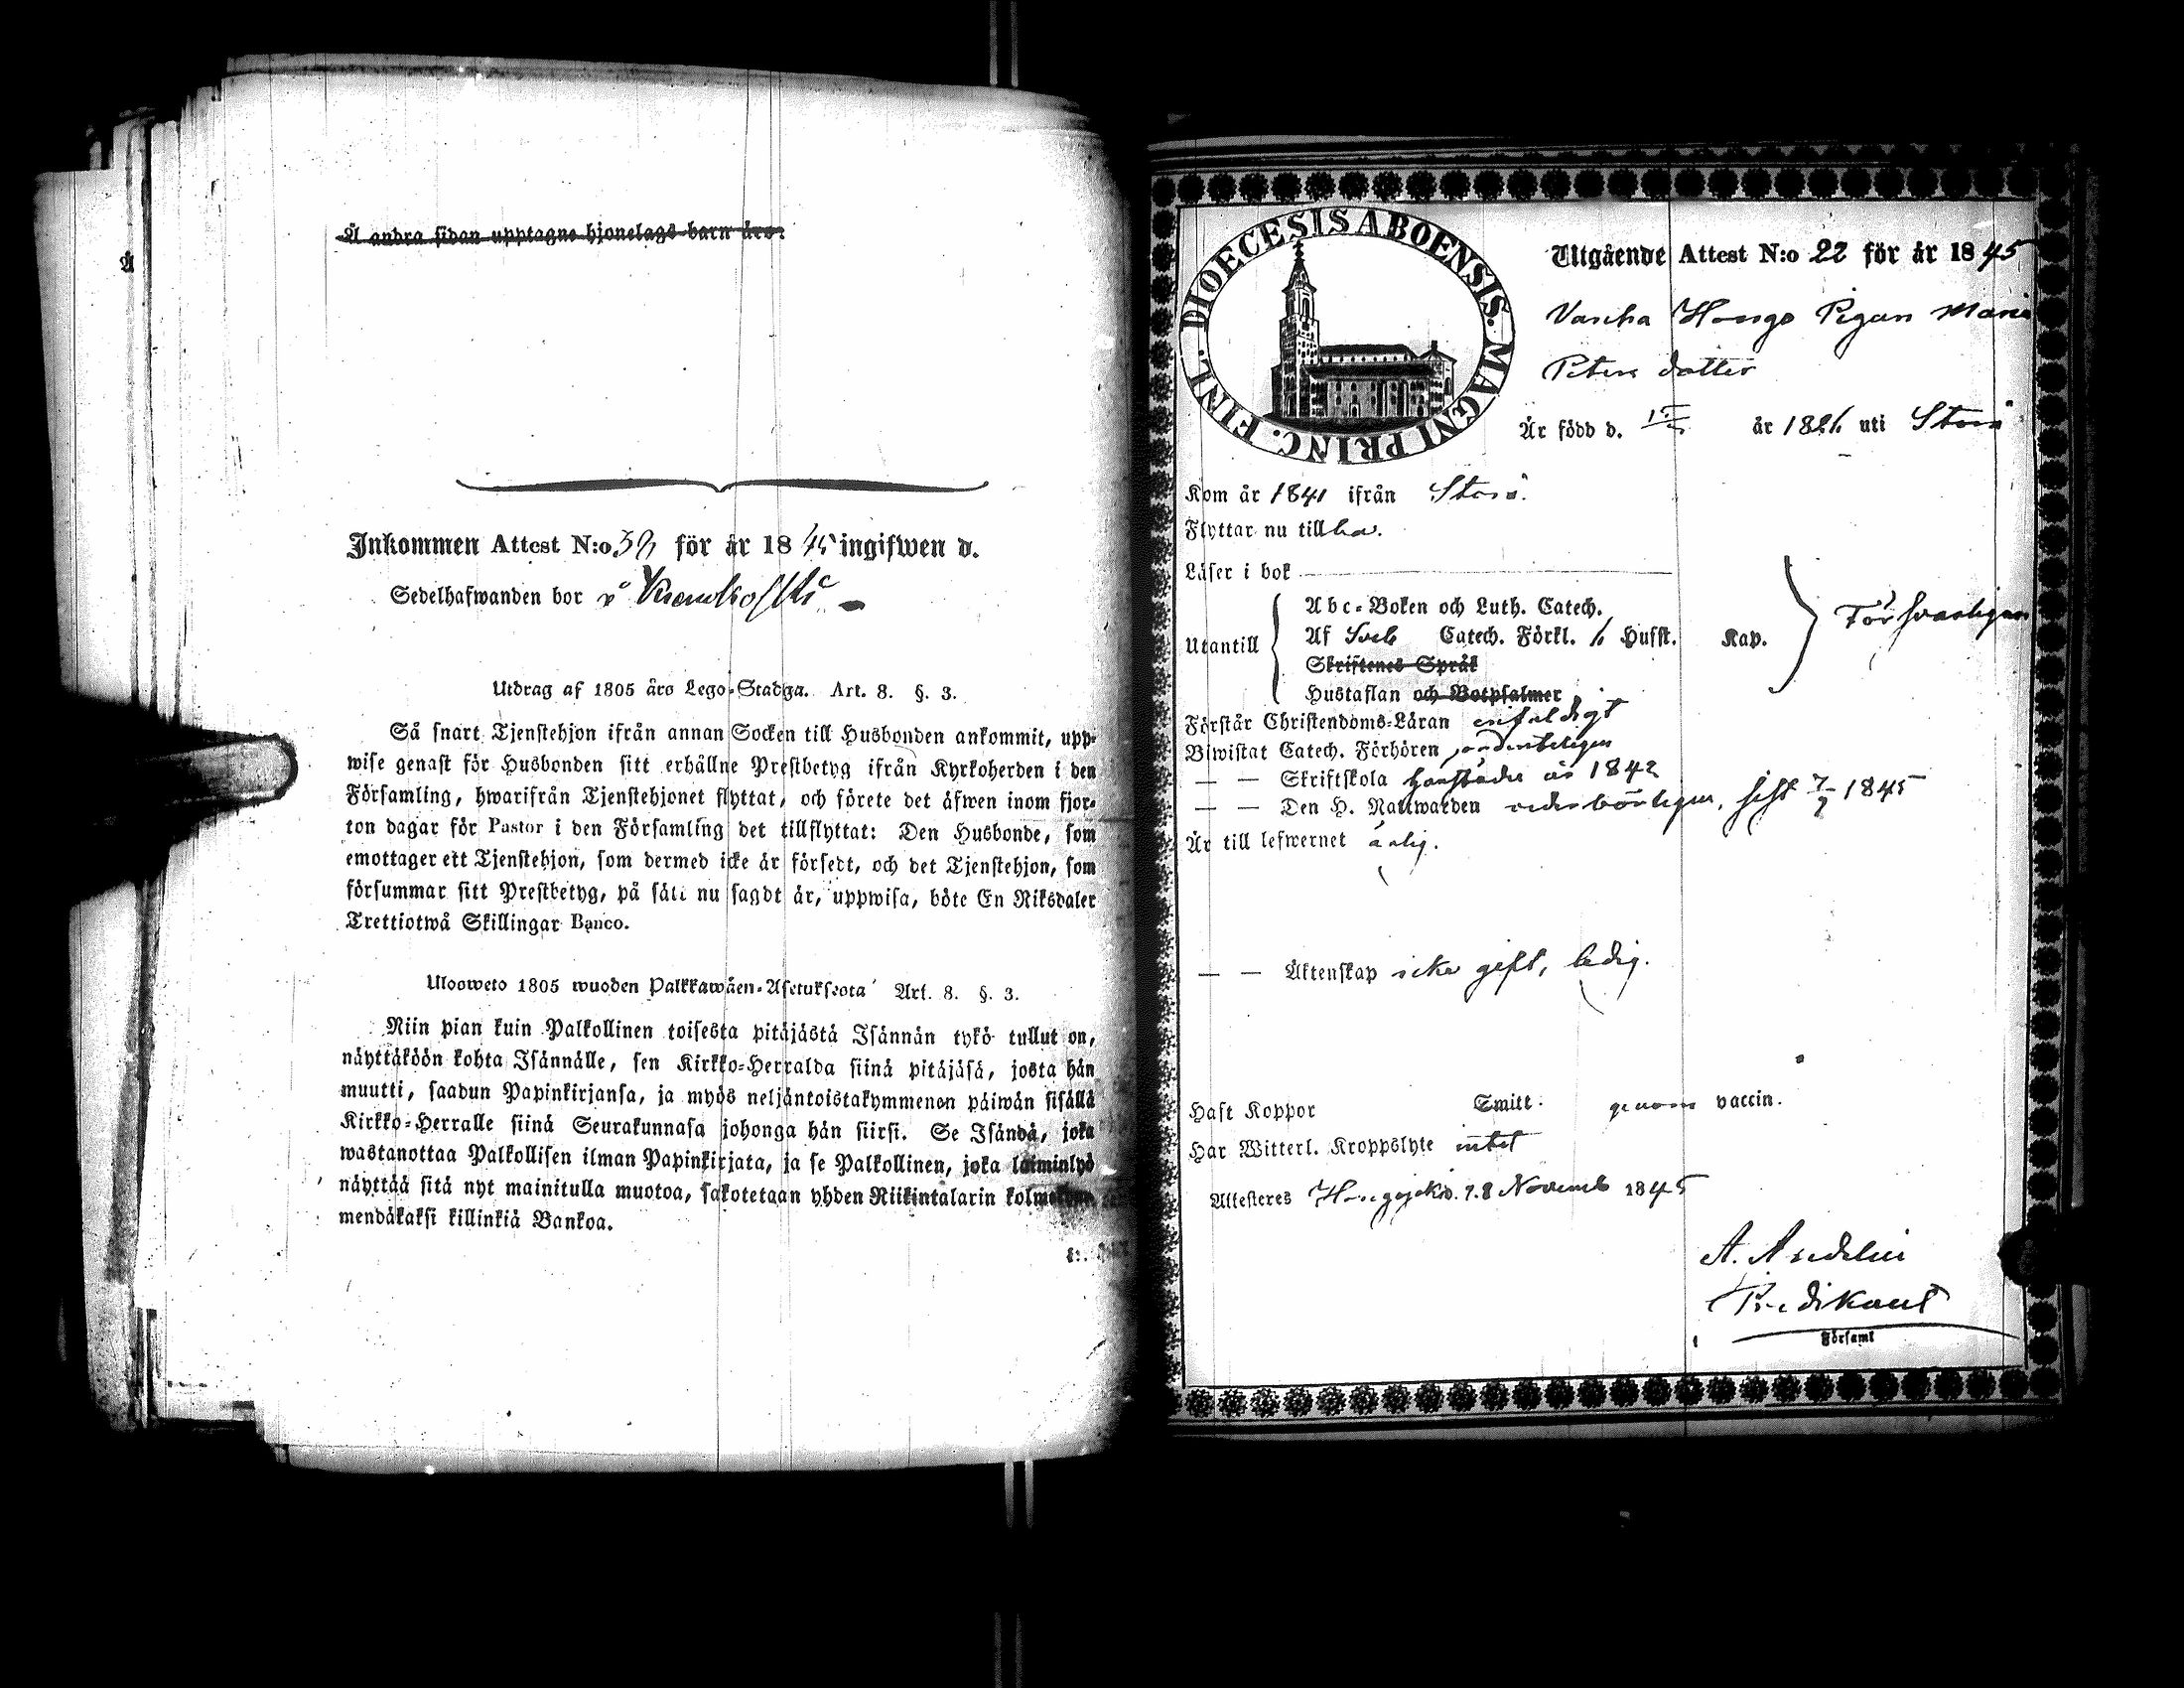 Å andra sidan upptagne hjonelags-barn äro:
Inkommen Attest N:o för år 18 45 ingifwen d.
Sedelhafwanden bor
Utdrag af 1805 års Lego-Stadga. Art. 8. §. 3.
Så snart Tjenstehjon ifrån annan Socken till Husbonden ankommit, upp-
wise genast för Husbonden sitt erhållne Prestbetyg ifrån Kyrkoherden i den
Församling, hwarifrån Tjenstehjonet flyttat, och förete det äfwen inom fjor-
ton dagar för Pastor i den Församling det tillflyttat: Den Husbonde, som
emottager ett Tjenstehjon, som dermed icke är försedt, och det Tjenstehjon, som
försummar sitt Prestbetyg, på sätt nu sagdt är, uppwisa, böte En Riksdaler
Trettiotwå Skillingar Banco.
Ulosweto 1805 wuoden Palkkawäen-Asetuksesta Art. 8. §. 3.
Niin pian kuin Palkollinen toisesta pitäjästä Isännän tykö tullut on,
näyttäköön kohta Isännälle, sen Kirkko-Herralda siinä pitäjäsä, josta hän
muutti, saadun Papinkirjansa, ja myös neljäntoistakymmenen päiwän sisällä
Kirkko-Herralle siinä Seurakunnasa johonga hän siirsi. Se Isändä, joka
wastanottaa Palkollisen ilman Papinkirjata, ja se Palkollinen, joka laiminlyö
näyttää sitä nyt mainitulla muotoa, sakotetaan yhden Riikintalarin kolmekym-
mendäkaksi killinkiä Bankoa.
DIOECESIS ABOENSIS. MAGNI PRINC. FINL.
Utgående Attest N:o 22 för år 18 45
Pigan Maria
Peters dotter
Är född d. år 1826 uti
Kom år 1841 ifrån
Flyttar nu till
Läser i bok
Utantill
Abc-Boken och Luth. Catech.
Af Sveb Catech. Förkl. Husst. Kap.
Skriftenes Språk
Hustaflan och Botpsalmer
Försvarligen
Förstår Christendoms-Läran enfaldigt
Biwistat Catech. Förhören ordenteligen
— — Skriftskola år 1842
— — Den H. Nattwarden vederbörligen, sist 7/9 1845
Är till lefwernet ärlig.
— — Äktenskap icke gift, ledig.
Haft Koppor Smitt. genom vaccin.
Har Witterl. Kroppslyte intet
Attesteres d. 18 Novemb 1845
Predikant
Församl